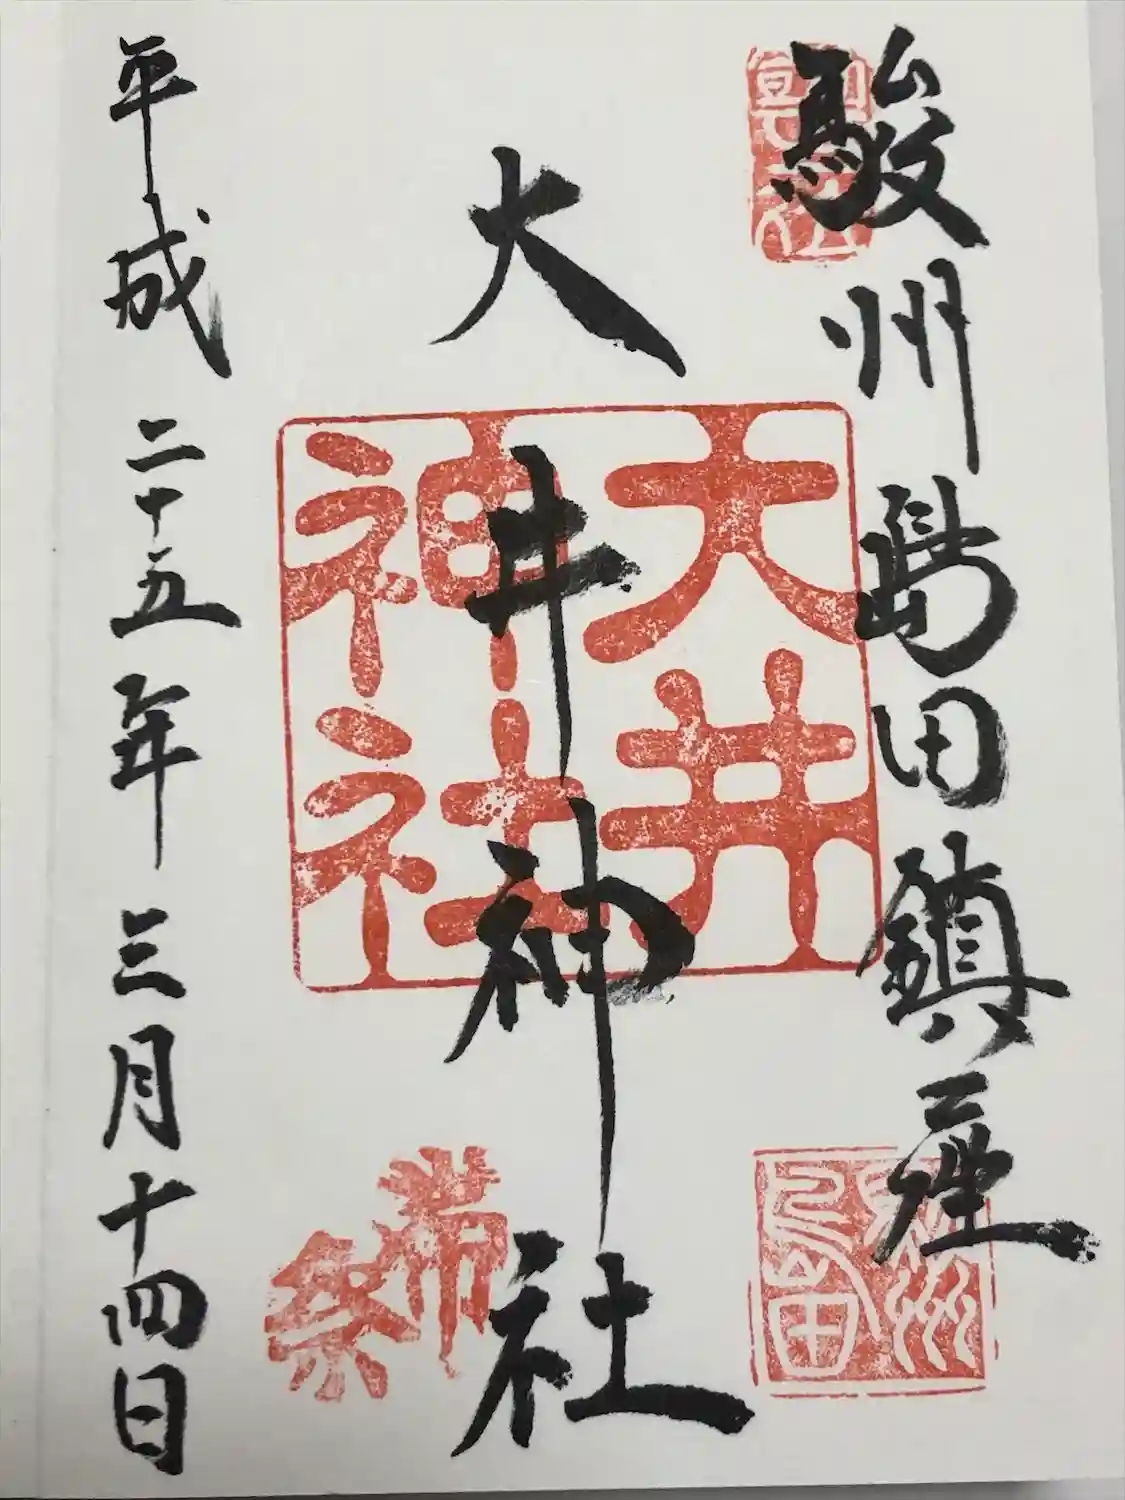 駿州島田鎮座
大井神社
大井
神社
帯
祭
平成二十五年三月十四日